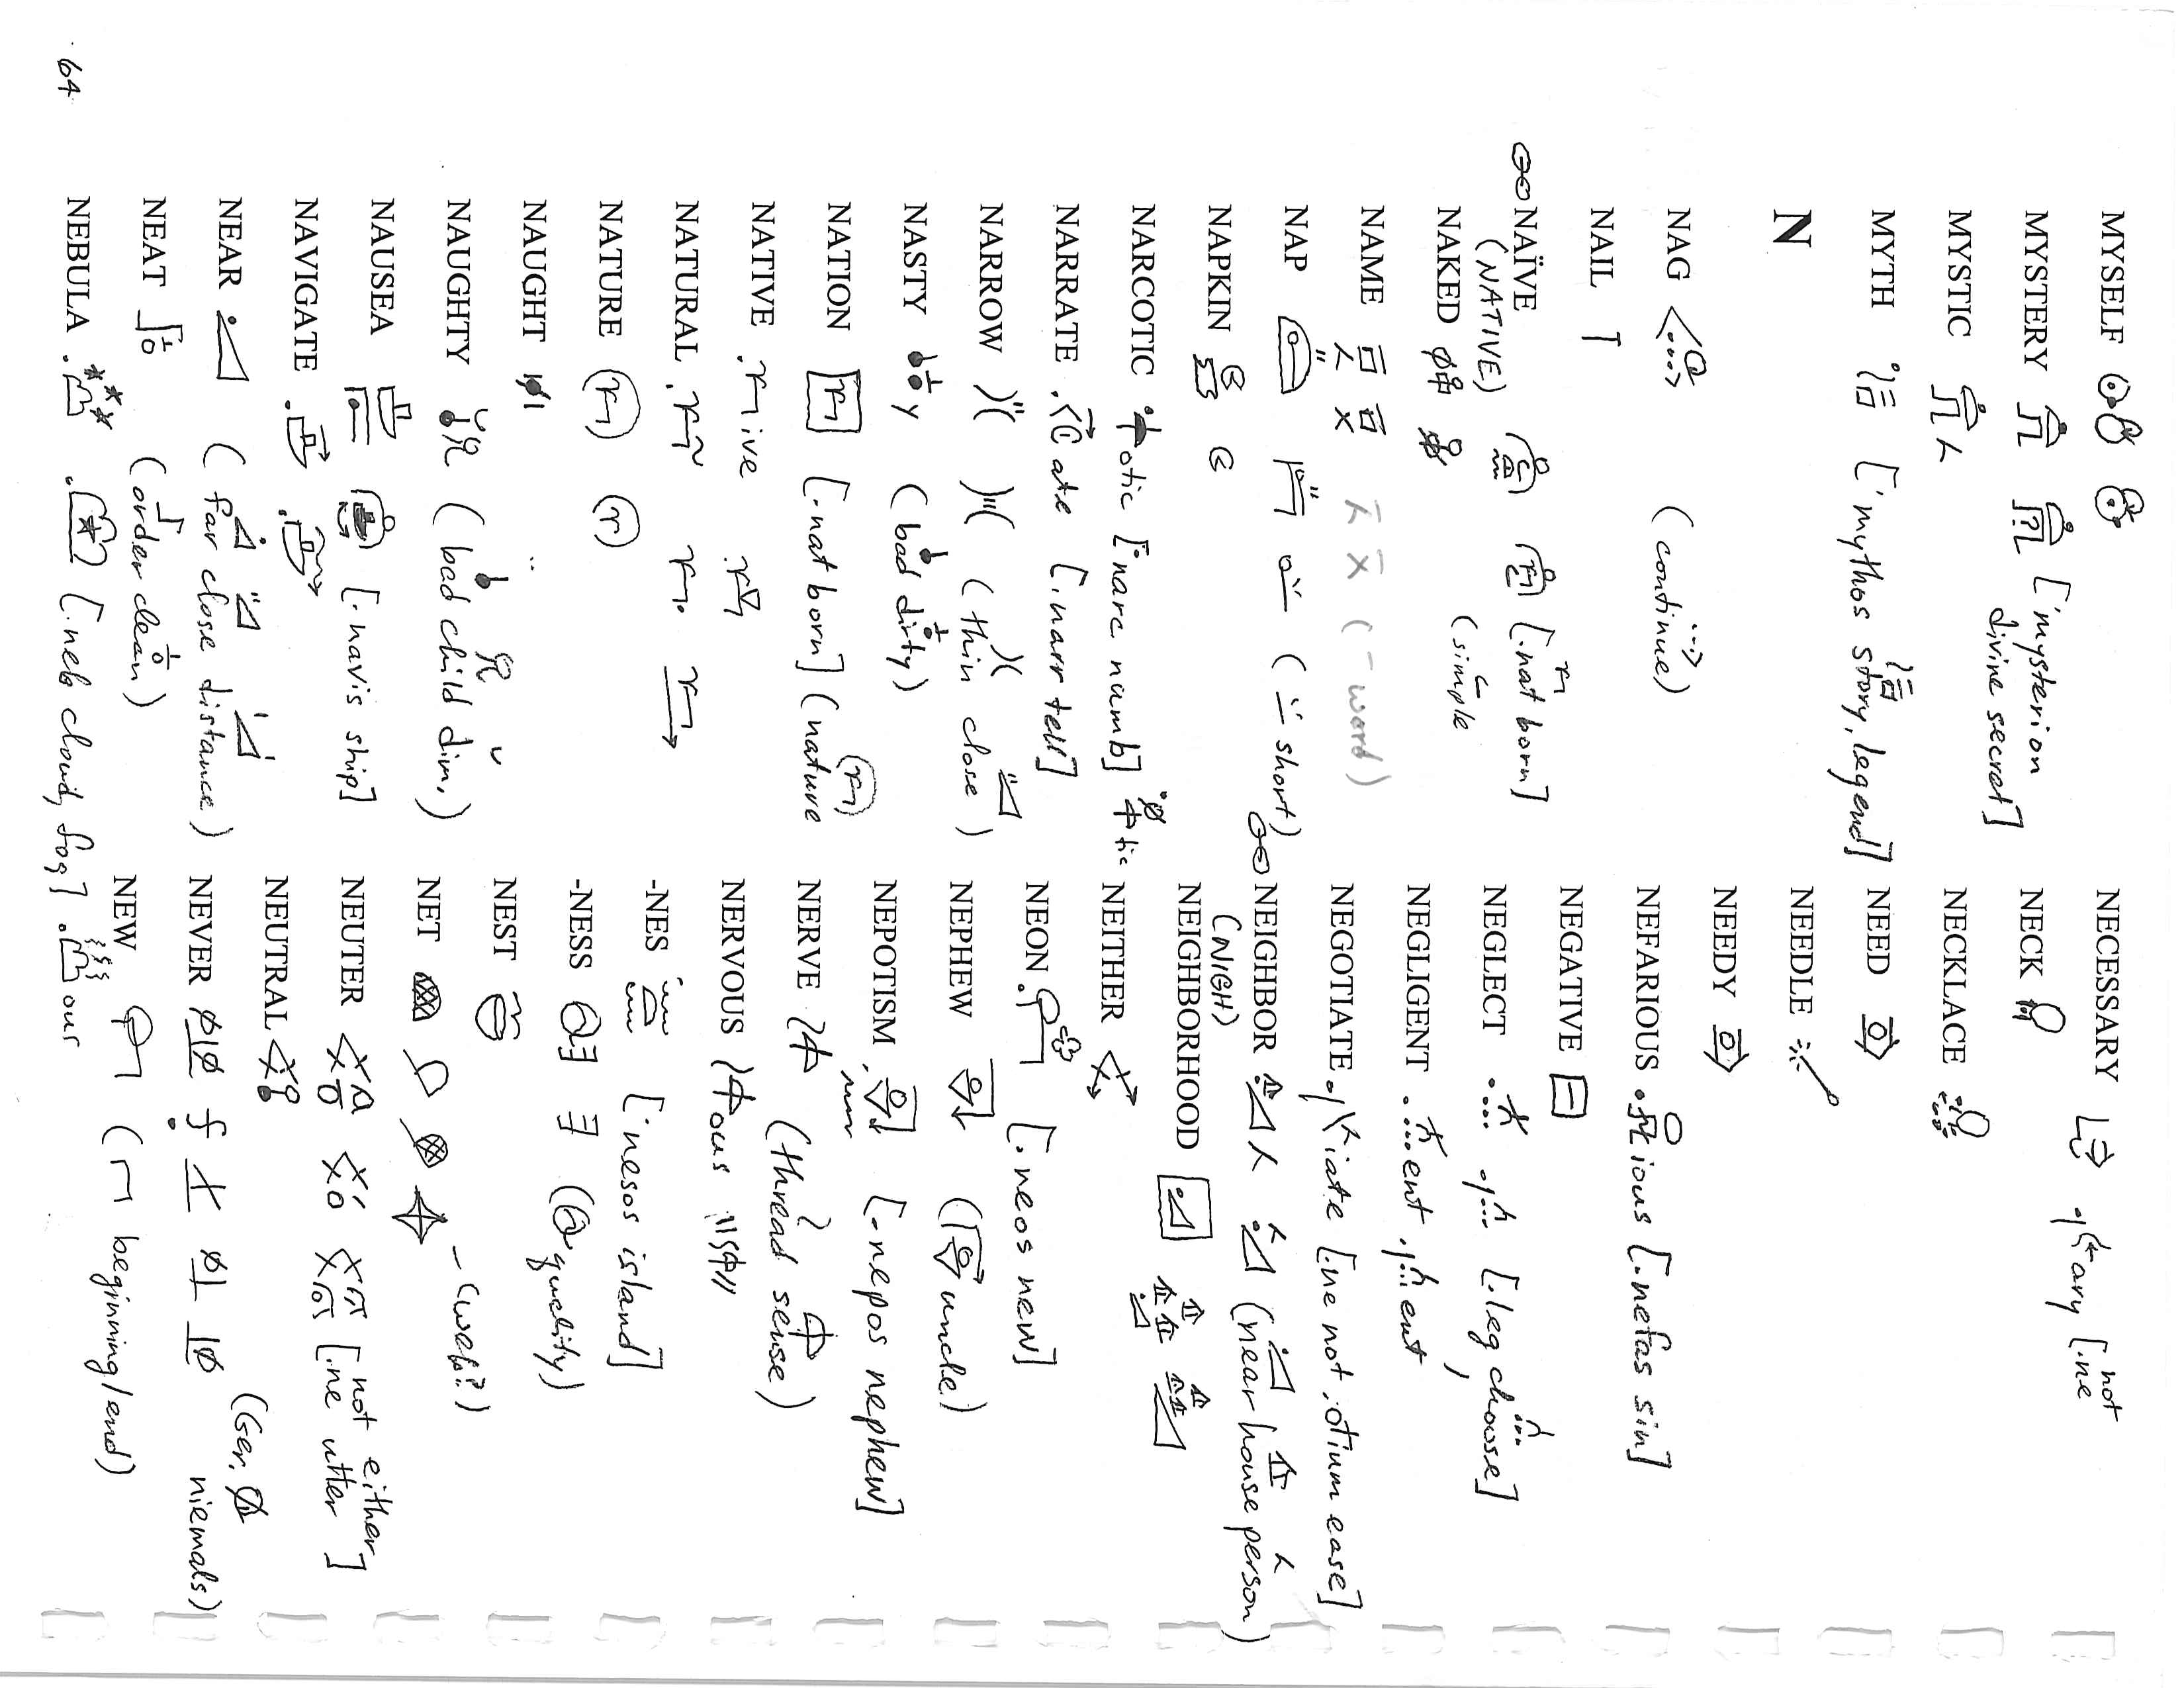 MYSELF
MYSTERY [mysterion
divine secret]
MYSTIC
MYTH [mythos story, legend]
N
NAG (continue)
NAIL
NAÏVE [.nat born]
(NATIVE) (simple
NAKED
NAME (– word)
NAP (short)
NAPKIN
NARCOTIC otic [narc numb] tic
NARRATE ate [.narr tell]
NARROW (thin close)
NASTY y (bad dirty)
NATION [.nat born] (nature
NATIVE ive
NATURAL
NATURE
NAUGHT
NAUGHTY (bad child dim.)
NAUSEA [.navis ship]
NAVIGATE
NEAR (far close distance)
NEAT (order clean)
NEBULA [.neb cloud, fog] ous
64
NECESSARY ary [.ne not
NECK
NECKLACE
NEED
NEEDLE
NEEDY
NEFARIOUS ious [.nefas sin]
NEGATIVE
NEGLECT [.leg choose]
NEGLIGENT ent ent
NEGOTIATE iate [.ne not .otium ease]
NEIGHBOR (near house person)
(NIGH)
NEIGHBORHOOD
NEITHER
NEON [.neos new]
NEPHEW (uncle)
NEPOTISM [.nepos nephew]
NERVE (thread sense)
NERVOUS ous
-NES [nesos island]
-NESS (quality)
NEST
NET – (web?)
NEUTER [.ne not utter either]
NEUTRAL
NEVER (Ger. niemals)
NEW (beginning/end)